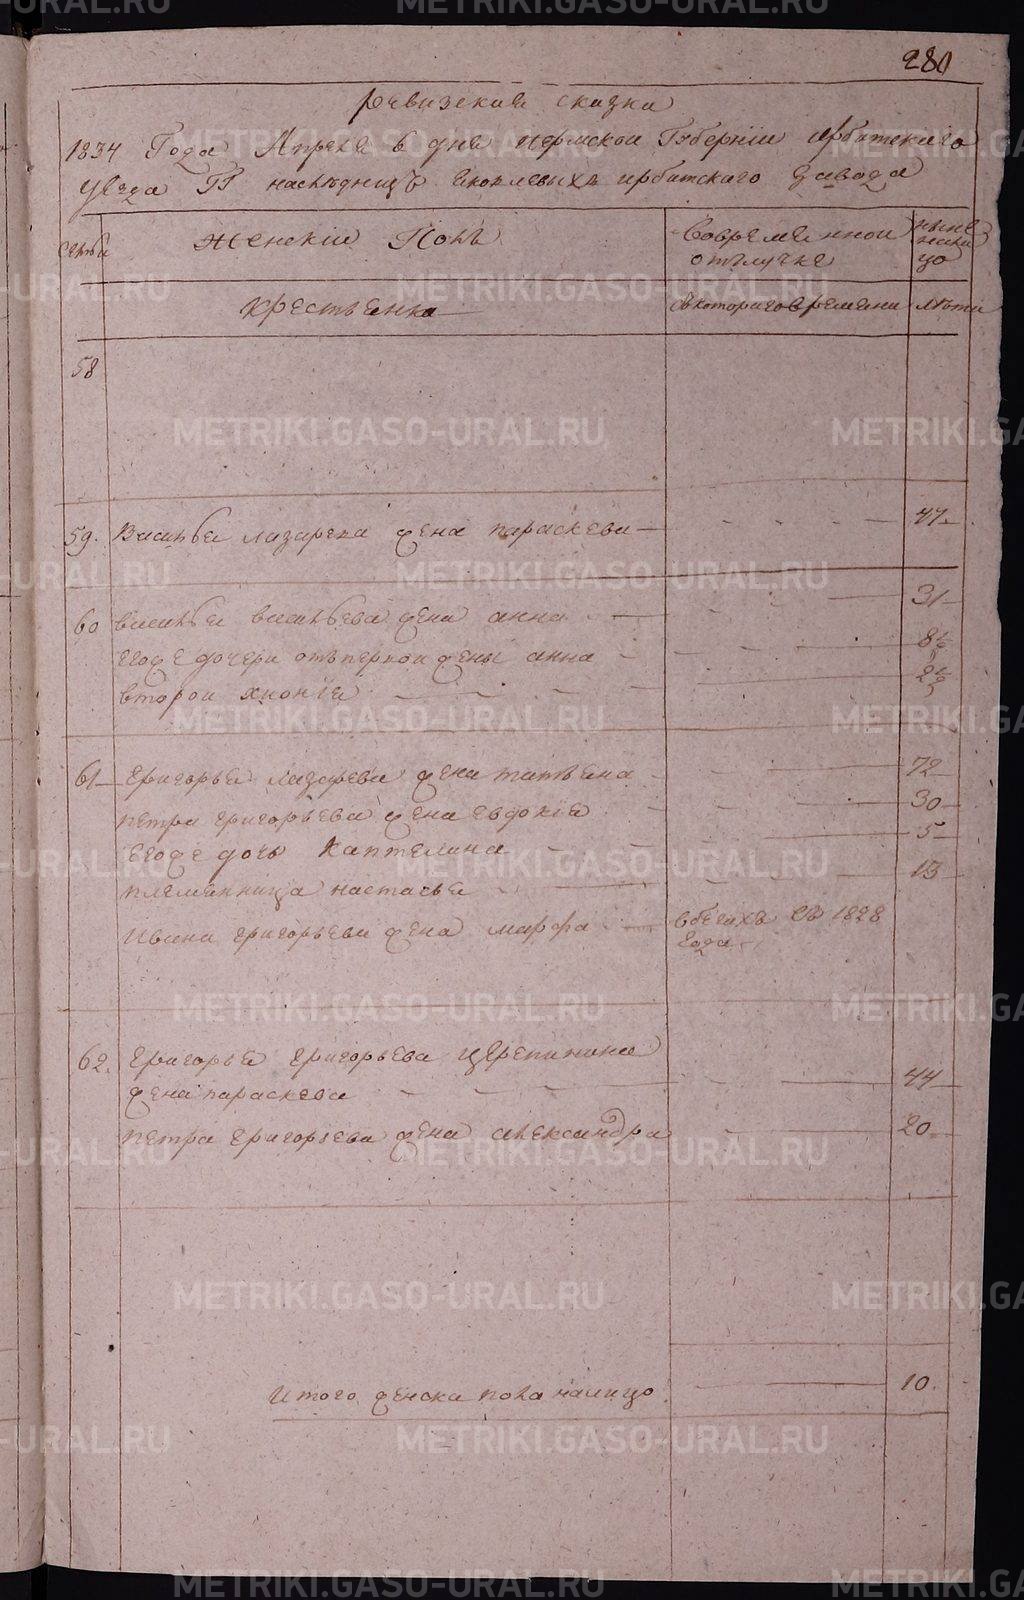 280
ревизския сказки
1834 Года Апреля 6 дня пермской Губернiи ирбитскаго
Уезда ГГ наследницъ яковлевыхъ ирбитскаго завода
семьи
Женскiи Полъ
Вовременнои отълучке
ныне налицо
крестьянка
Скотораго времяни
лѣта
58
59. Василья лазарева жена параскева — 47
60 василья васильева жена анна 31
егоже дочери отъ первои жены анна 8½
второи хионiя 2½
61 григорья лазарева жена татьяна 72
петра григорьева жена евдокiя 30
егоже дочь каптелина 5
племянница настасья 13
ивана григорьева жена марфа вбегахъ съ 1828 года
62. григорья григорьева
жена параскева 44
петра григорьева жена александра 20
итого женска пола налицо 10.
METRIKI.GASO-URAL.RU